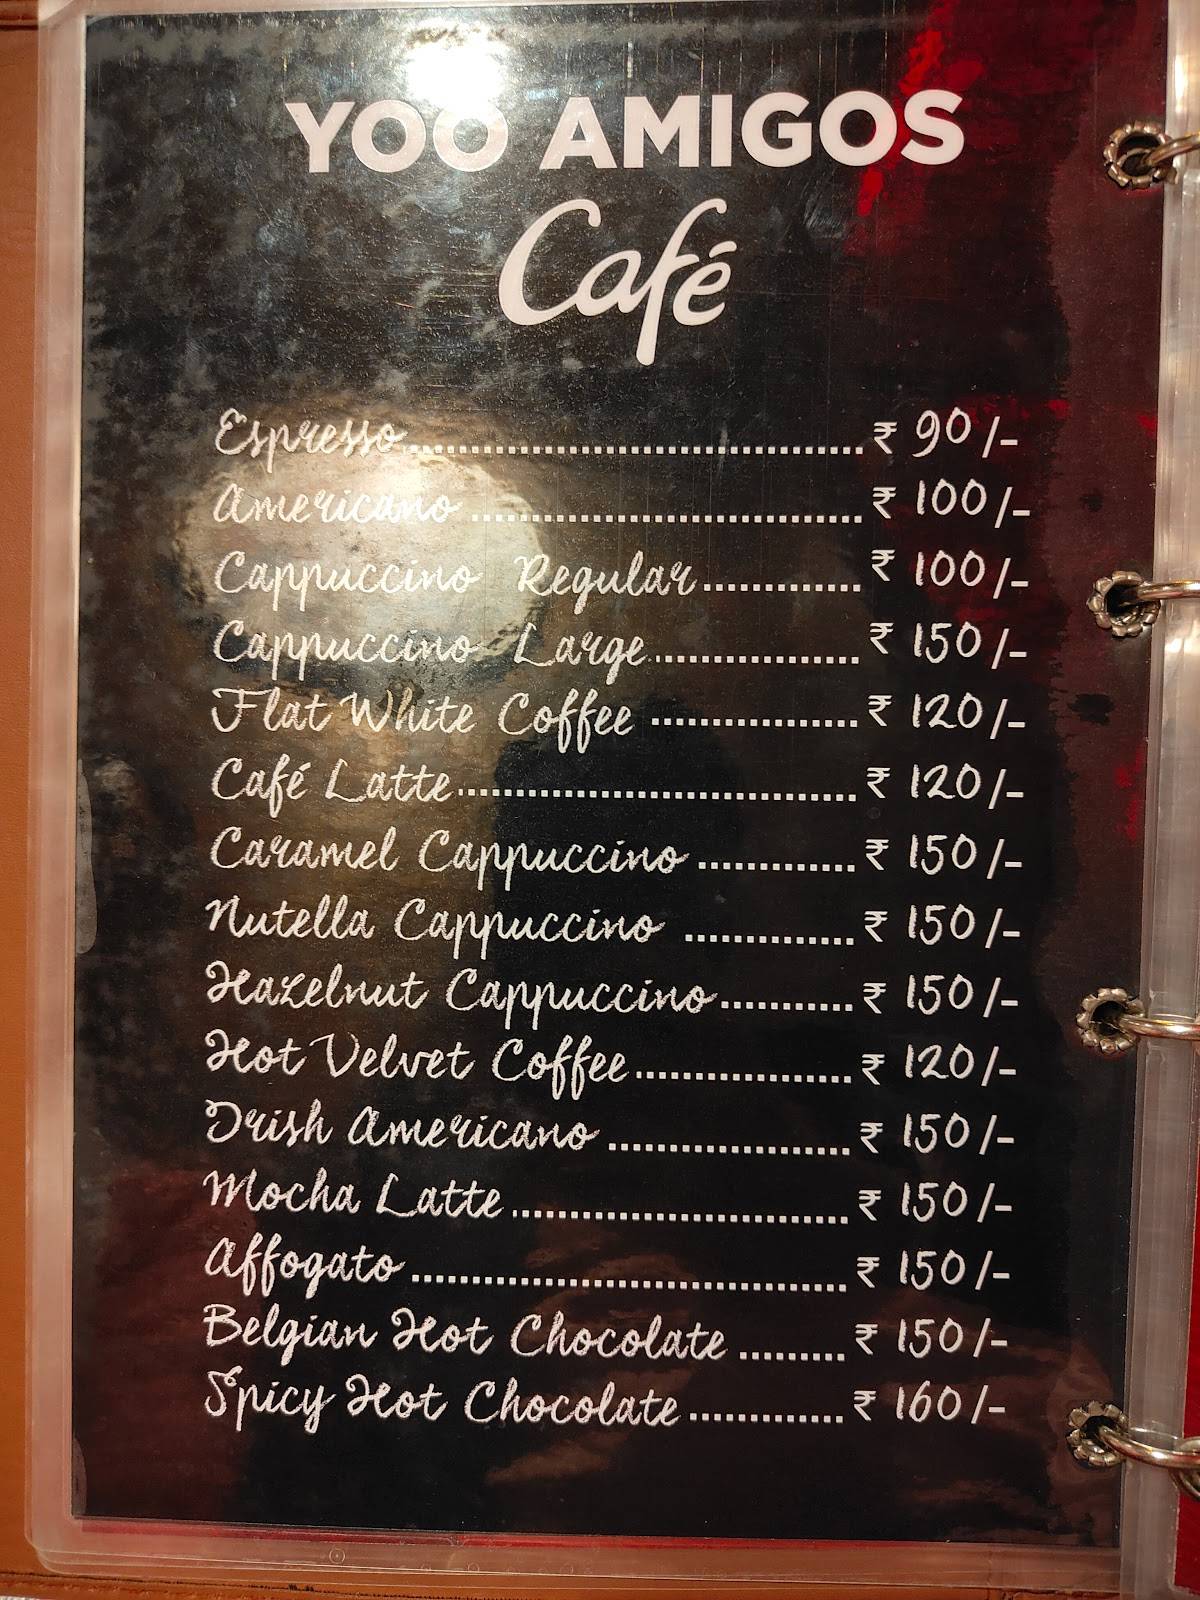 YOO AMIGOS
Café
Espresso........................................₹ 90/-
Americano ..................................₹ 100/-
Cappuccino Regular..............₹ 100/-
Cappuccino Large..................₹ 150/-
Flat White Coffee ..................₹ 120/-
Café Latte...................................₹ 120/-
Caramel Cappuccino ..............₹ 150/-
Nutella Cappuccino ...............₹ 150/-
Hazelnut Cappuccino............₹ 150/-
Hot Velvet Coffee...................₹ 120/-
Irish Americano .....................₹ 150/-
Mocha Latte..............................₹ 150/-
Affogato ......................................₹ 150/-
Belgian Hot Chocolate ..........₹ 150/-
Spicy Hot Chocolate..............₹ 160/-